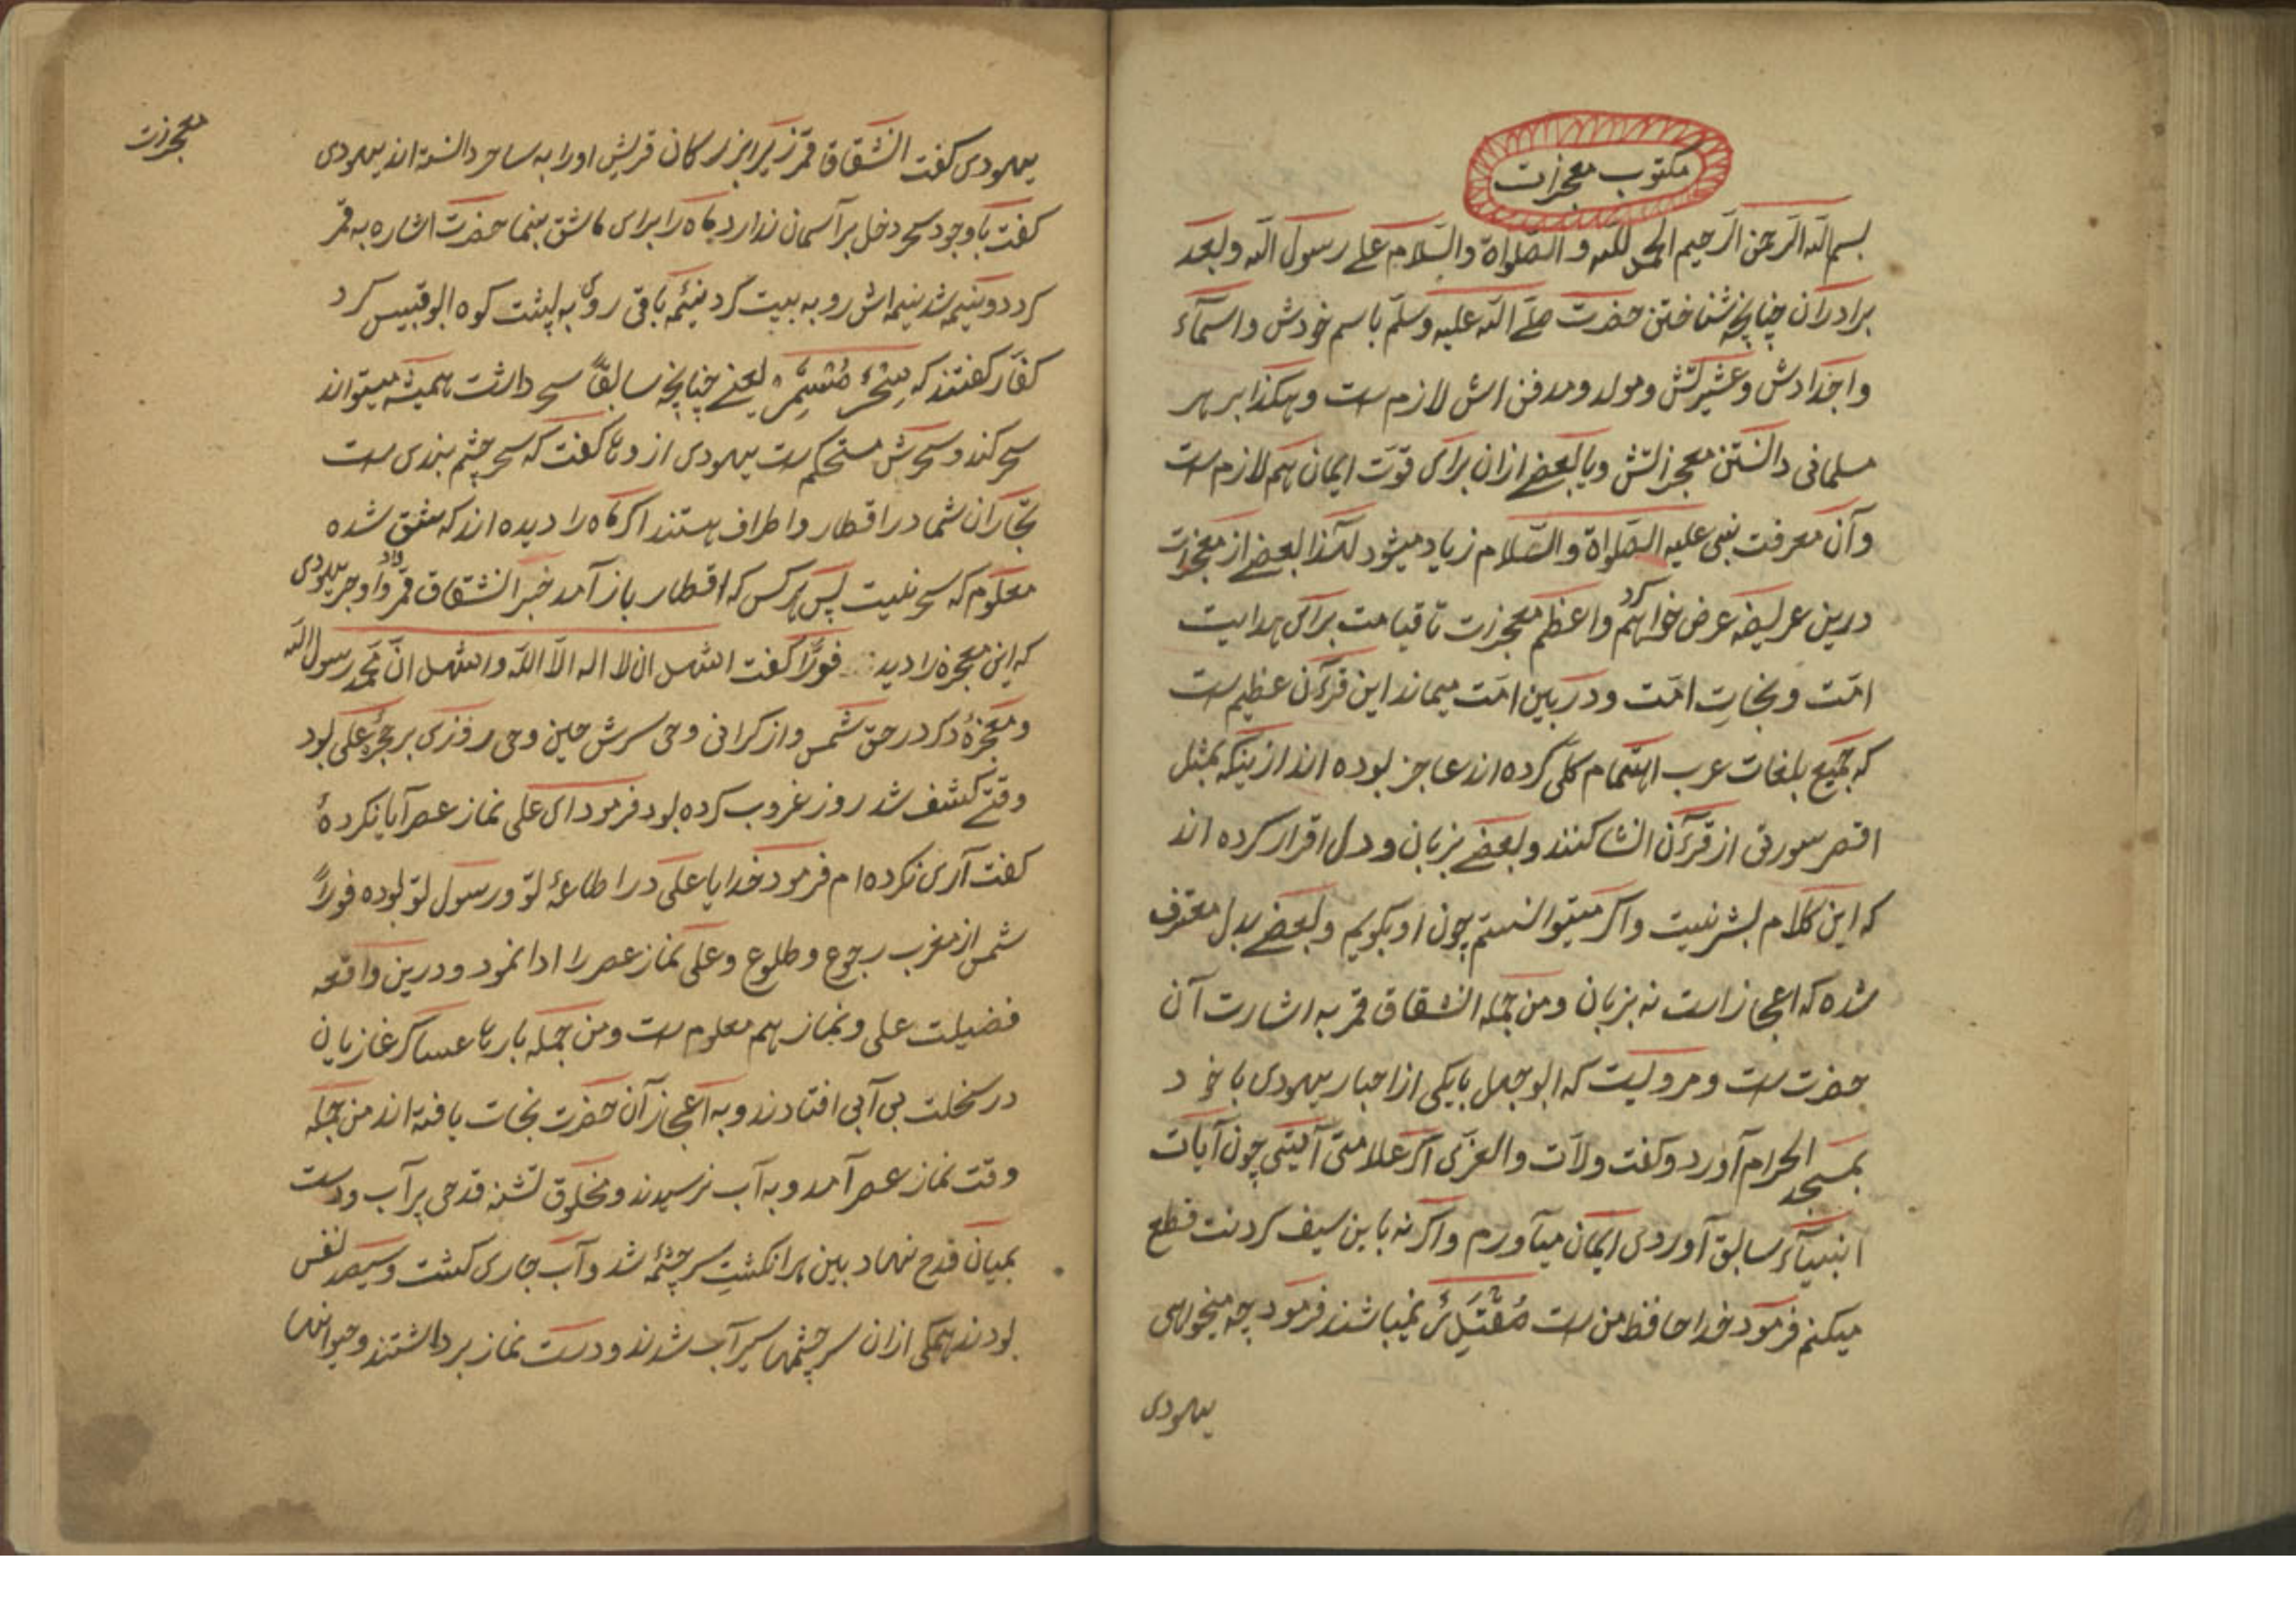 مکتوب معجزات
بسم الله الرحمن الرحیم الحمد لله و الصلواة والسلام علی رسول الله وبعد
برادران چنانچه شناختن حضرت صلی الله علیه وسلم باسم خودش واسمآء
واجدادش وعشیرتش ومولد ومدفن اش لازم ست وهکذا بر هر
مسلمانی دانستن معجزاتش ویا بعضی ازان برای قوّت ایمان هم لازم ست
وآن معرفت نبی علیه الصلواة والسّلام زیاد میشود لهذا بعضی از معجزات
درین عریضه عرض خواهم کرد واعظم معجزت تا قیامت برای هدایت
امّت ونجاتِ امّت ودر بین امّت میماند این قرآن عظیم ست
که جمیع بلغات عرب اهتمام کلی کرده اند عاجز بوده اند ازینکه بمثل
اقصر سورتی از قرآن انشا کنند وبعضی بزبان ودل اقرار کرده اند
که این کلام بشر نیست واگر میتوانستم چون او بگویم وبعضی بدل معترف
شده که اعجاز است نه بزبان ومن جمله انشقاق قمر به اشارت آن
حضرت ست ومرویست که ابو جهل با یکی از احبار یهودی با خود
بمسجد الحرام آورد وگفت ولآت والعزّی اگر علامتی آیتی چون آیات
انبیآء سابق آوردی ایمان میآورم واگر نه باین سیف گردنت قطع
میکنم فرمود خدا حافظ من ست نمیباشند فرمود چه میخواهی
یهودی
معجزت
یهودی گفت انشقاق قمر زیرا بزرگان قریش اورا به ساحر دانسته اند یهودی
گفت با وجود سحر دخل بر آسمان ندارد ماه را برای ما شق بنما حضرت اشاره به قمر
کرد دو نیمه شد نیمه اش رو به بیت کرد نیمهٔ باقی روی به پشت کوه ابو قبیس کرد
کفّار گفتند که سِحْرٌ مُسْتَمِرٌّ یعنی چنانچه سابقاً سحر داشت همیشه میتواند
سحر کند وسحرش مستحکم ست یهودی از دنا گفت که سحر چشم بندی ست
تجّاران شما در اقطار واطراف هستند اگر ماه را دیده اند که شق شده
معلوم که سحر نیست پس هر کس که اقطار باز آمد خبر انشقاق قمر داد یهودی
که این معجزه را دید فوراً گفت اشهد ان لا اله الاّ الله واشهد انّ محمد رسول الله
ومعجزهٔ دگر در حق شمس واز گرانی وحی سرش حین وحی روزی بر حجرِ علی بود
وقتی کشف شد روز غروب کرده بود فرمود ای علی نماز عصر آیا نکردهٔ
گفت آری نکرده ام فرمود خدایا علی در اطاعهٔ تو ورسول تو بوده فوراً
شمس از مغرب رجوع وطلوع وعلی نماز عصر را ادا نمود ودرین واقعه
فضیلت علی ونماز هم معلوم ست ومن جمله بارها عساکر غازیان
در سخلت بی آبی افتادند وبه اعجاز آن حضرت نجات یافته اند من جمله
وقت نماز عصر آمد وبه آب نرسیدند ومخلوق تشنه قدحی پر آب ودست
بمیان قدح نهاد بین هر انگشتِ سر چشمهٔ شد وآب جاری گشت وسیصد نفس
بودند همگی ازان سر چشمها سیر آب شدند ودست نماز بر داشتند وحیوانها